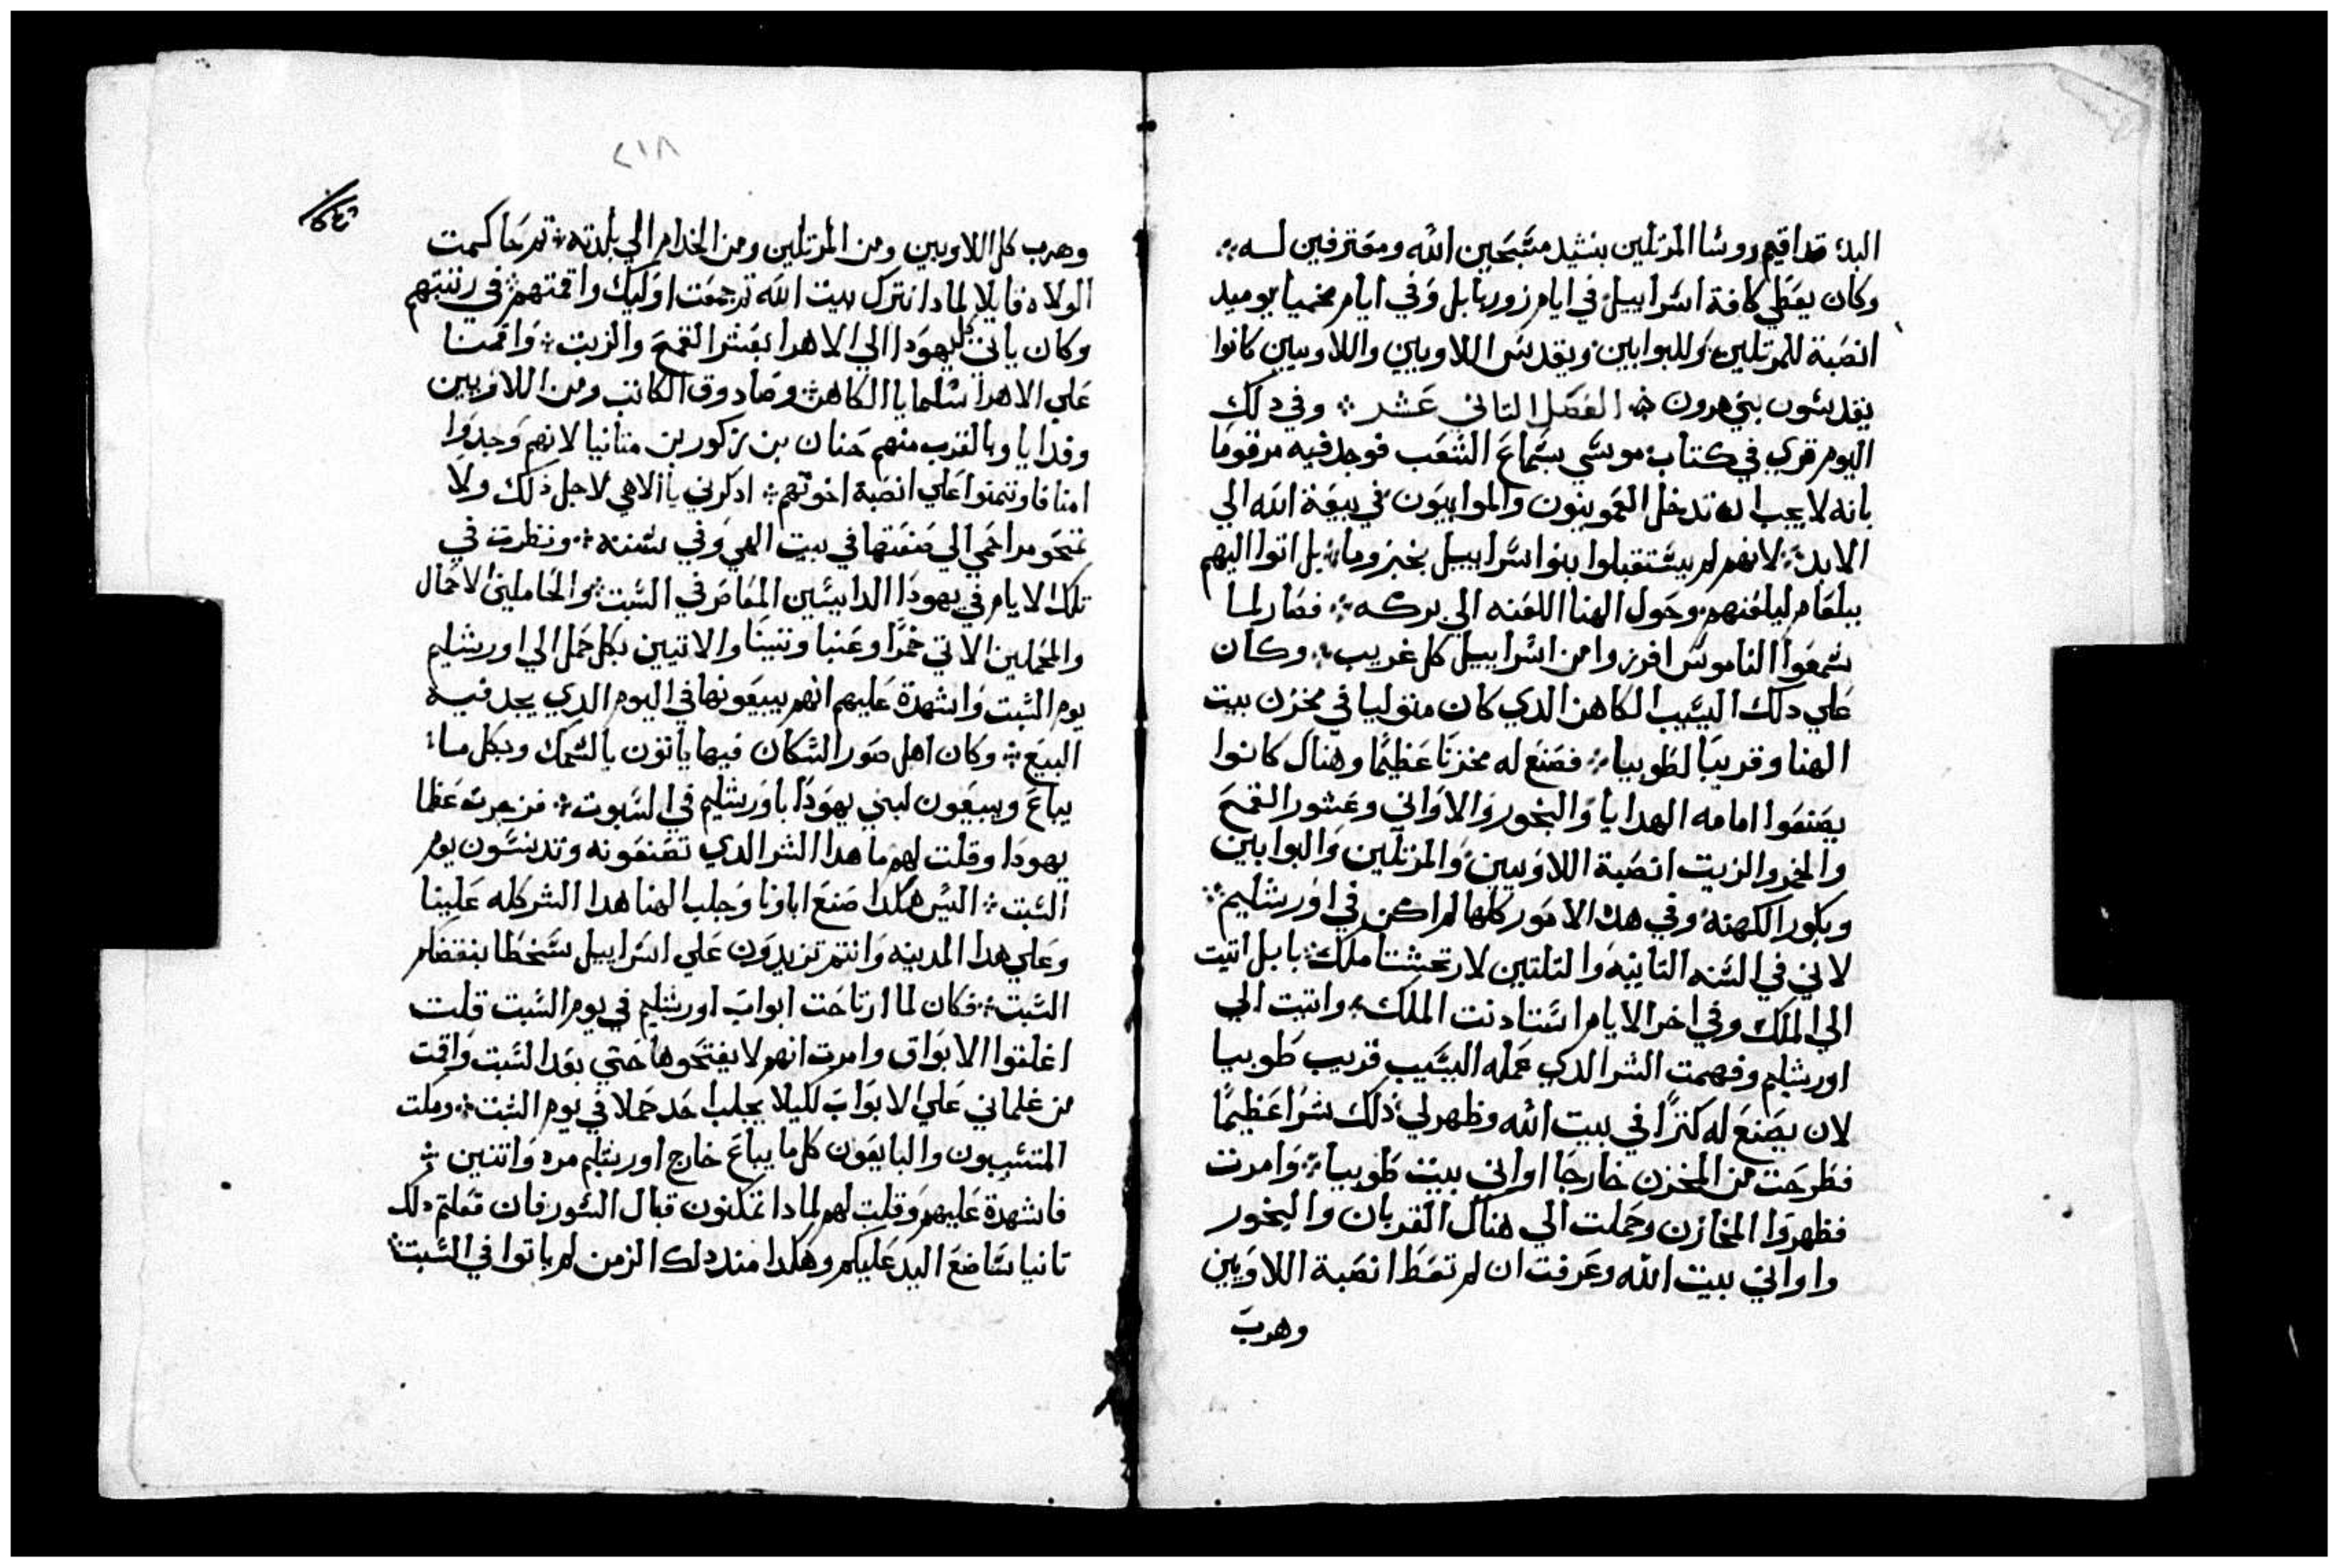 البدء قد اقيم روسا المرتلين بنشيد مسَبَحين الله ومعَترفين لــه ܀
وكان يعَطي كافة اسَراييل في ايام زوربابل وَفي ايام نحميا يوميد
انصَبة للمرتلين وَللبوابين ويقدسَ اللاويين واللاويين كانوا
يقدسَون بني هرون ܀ الفصَل التاني عَشر ܀ وفي دلك
اليوم قري في كتاب موسَي بسَماعَ الشعَب فوجد فيه مرقومَا
بانه لا يجب ان تدخل العَمونيون والموابيَون في بيعَة الله الي
الابد ܀ لانهم لم يسَتقبلوا بنوا سَراييل بخبز وما ܀ بل اتوا اليهم
ببلعَام ليلعَنهم وحَول الهنا اللعَنه الي بركه ܀ فصَار لما
سَمعَوا الناموسَ افرزوا من اسَراييل كل غريب ܀ وكان
عَلي دلك اليسَيب الكاهن الدي كان متوليا في مخزن بيت
الهنا وقريبَا لطَوبيا ܀ فصَنعَ له مخزنَا عَظيمًا وهناك كانوا
يصَنعَوا امامه الهدايا وَالبخور وَالاوَاني وعَشور القمحَ
والخمر والزيت انصَبة اللاوَيين وَالمرتلين وَالبوابين
وبكور الكهنة وفي هده الامَور كلها لم اكن في اوَرشليم ܀
لاني في السَنه التانيَه وَالتلتين لارتحشتا ملك بابل اتيت
الي الملك وفي اخر الايام اسَتادنت الملك وَاتيت الي
اورشليم وفهمت الشر الدي عَمله اليسَيب قريب طَوبيا
لان يصَنعَ له كنزًا في بيت الله وظهر لي ذلك شرًا عَظيمًا
فطَرحَت من المخزن خارجَا اواني بيت طَوبيا ܀ وَامرت
فطهروَا المخازن وحَملت الي هناك القربان والبخور
واواني بيت الله وعَرفت ان لم تعَطَ انصَبة اللاوَيين
وهربَ
٢١٨
وهرب كل اللاويين ومن المرتلين ومن الخدام الي بلدته ܀ تم حَاكمت
الولاه قايلا لمادا نترك بيت الله تم جمعَت اوَليك واقمتهم في رتبتهم
وكان ياتي كل يهوَدا الي الاهرا بعَشر القمحَ والزيت ܀ وَاقمنا
عَلي الاهرا سَلمايا الكاهن وصَادوق الكاتب ومن اللاوَيين
وفدايا وبالقرب منهم حَنان بن زكور بن متانيا لانهم وَجدوَا
امنا فاوتمنوا عَلي انصَبة اخوتهم ܀ ادكرني يا الاهي لاجل ذلك ولا
تمحَو مراحَمي الي صَنعَتها في بيت الهي وَفي سَننه ܀ ونظرت في
تلك الايام في يهودَا الدايسَين المعَاصَر في السَبت وَالحَاملين الاحَمال
والمحَملين الاتي خمرًا وعَنبا وتينَا والاتيين بكل حَمل الي اورشليم
يوم السَبت وَاشهدة عَليهم انهم يبيعَونها في اليوم الدي يجد فيه
البيعَ ܀ وكان اهل صَور السَكان فيها ياتوَن بالسَمك وبكل ما
يباعَ ويبيعَون لبني يهوَدَا باوَرشليم في السَبوت ܀ فزجرت عَظما
يهودَا وقلت لهم ما هدا الشر الدي تصَنعَونه وتدنسَون يوم
السَبت ܀ اليسَ هكدا صَنعَ اباونا وَجلب الهنا هدا الشر كله عَلينا
وعَلي هدا المدينه وَانتم تزيدوَن عَلي اسَراييل سَخطَا بنقضكم
السَبت ܀ فكان لما ارتاحَت ابوابَ اورشليم في يوم السَبت قلت
اغلقوا الابوَاق وامرت انهم لا يفتحَوها حَتي بعَد السَبت وَاقمت
من غلماني عَلي الابوَابَ لكيلا يجلب احَد حَملا في يوم السَبت ܀ ومكت
المتسَببون والبايعَون كل ما يباعَ خارج اورشليم مره وَاتنين ܀
فاشهدة عَليهم وَقلت لهم لمادا تمكتون قبال السَور فان فعَلتم دلك
تانيا سَاضعَ اليد عَليكم وهكدا مند دلك الزمن لم ياتوا في السَبت ܀